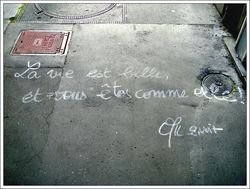 La vie est belle,
et vous êtes comme elle !